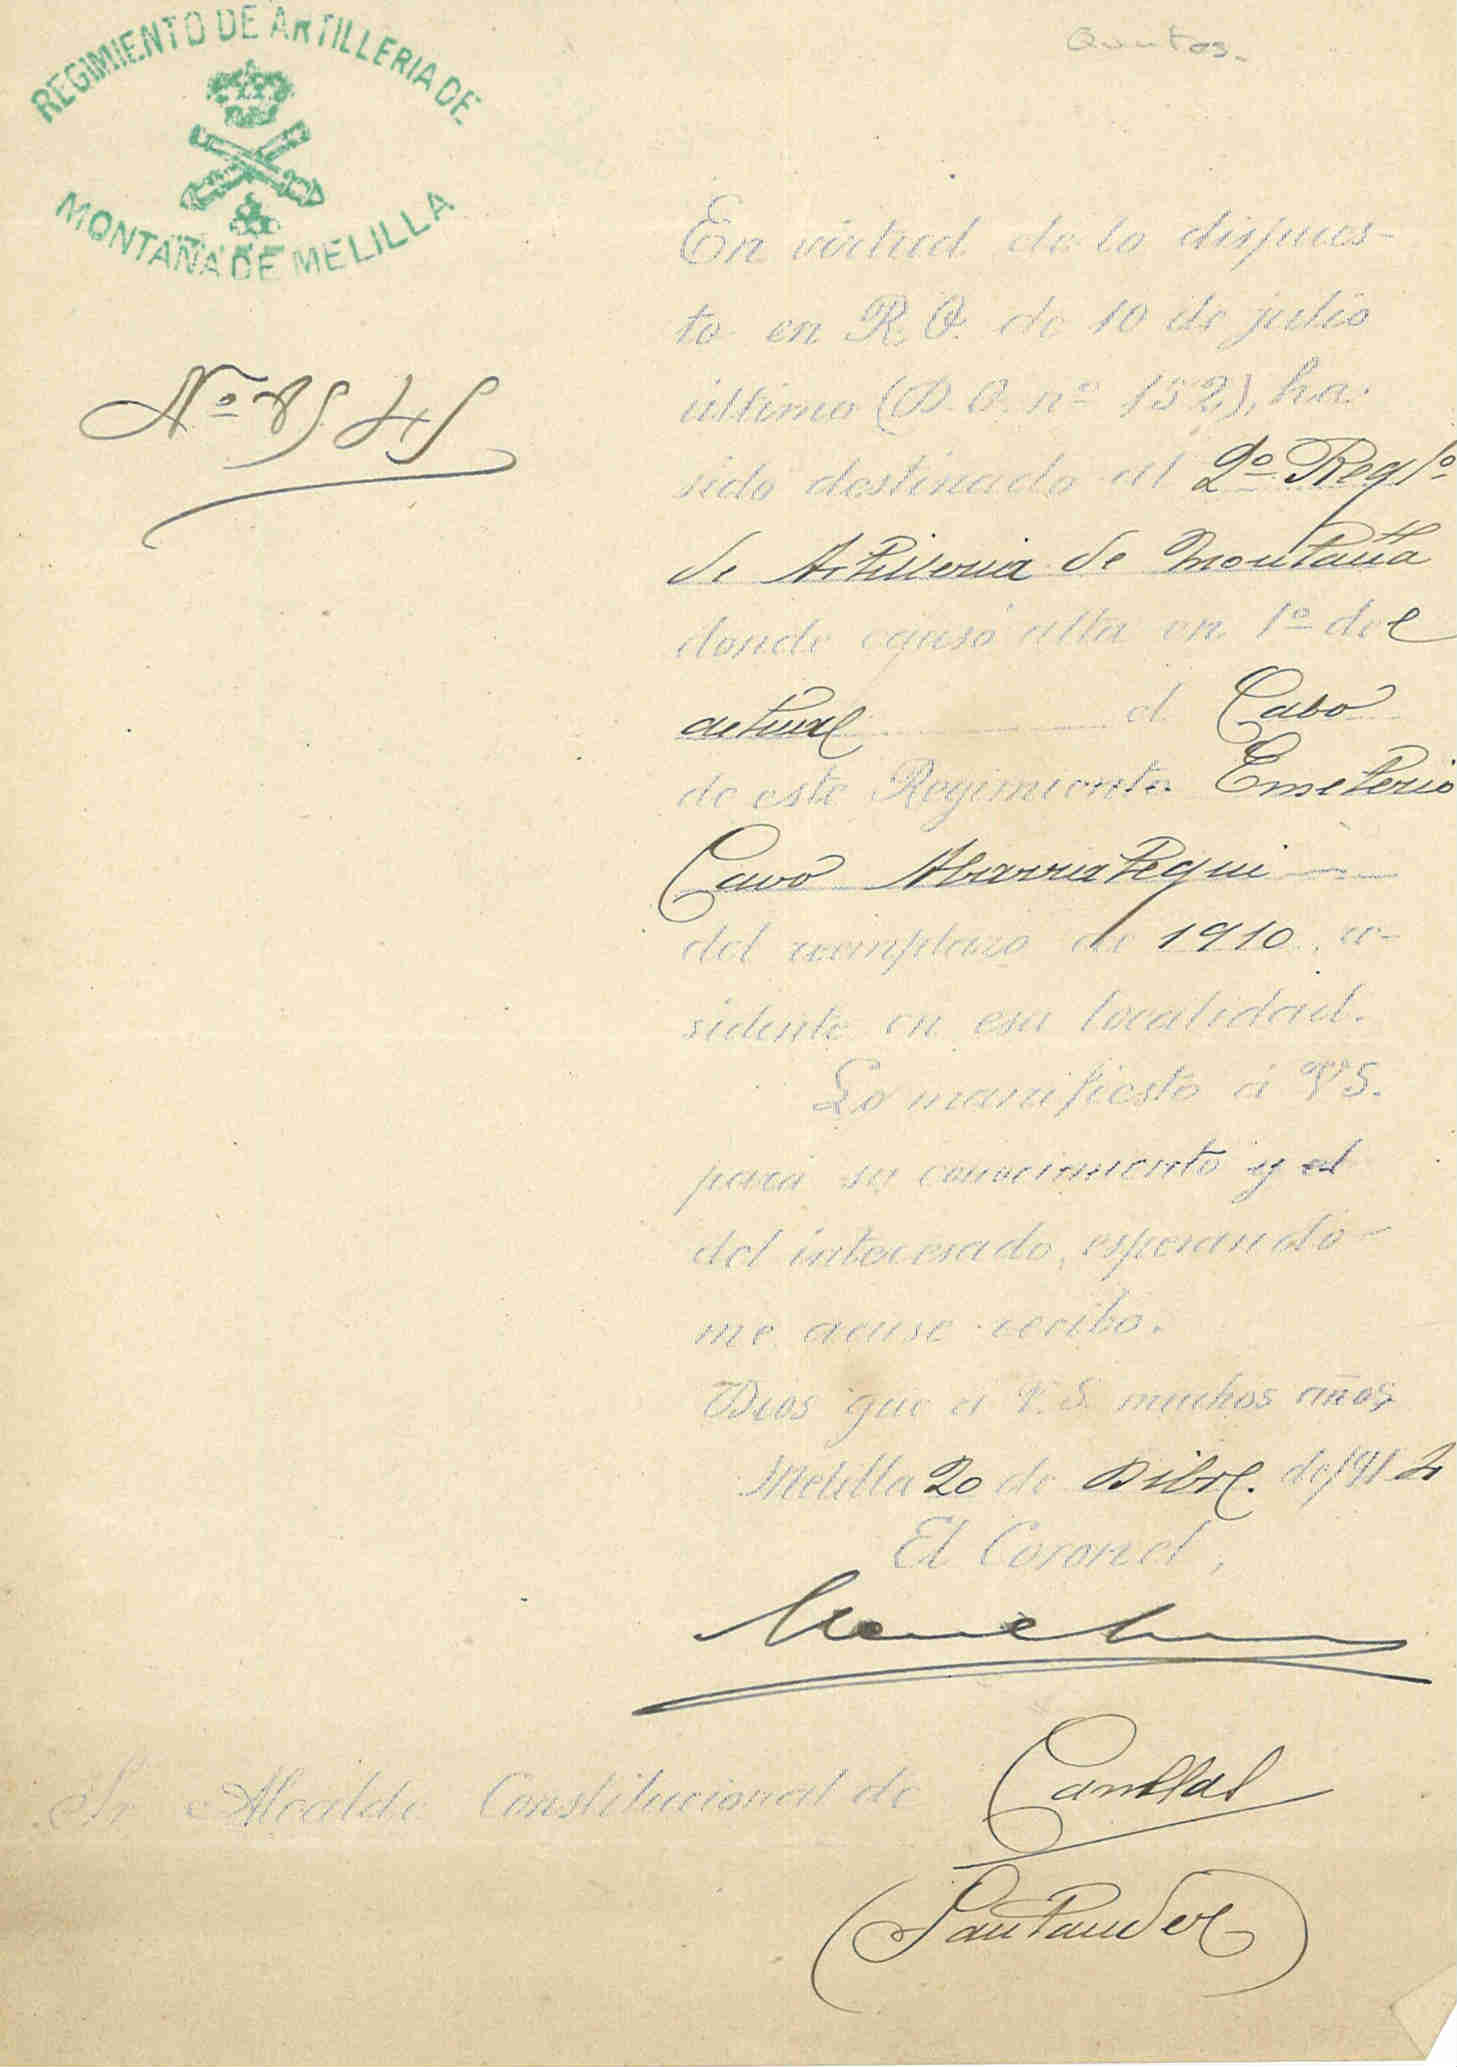 Quintos.
REGIMIENTO DE ARTILLERIA DE
MONTAÑA DE MELILLA
Nº 8545
En virtud de lo dispues-
to en R. O. de 10 de julio
último (D. O. nº 152), ha
sido destinado al 2º Regtº
de Artilleria de Montaña
donde causó alta en 1º del
actual el Cabo
de este Regimiento Emeterio
Cavo Abarrategui
del reemplazo de 1910, re-
sidente en esa localidad.
Lo manifiesto á V.S.
para su conocimiento y el
del interesado, esperando
me acuse recibo.
Dios gue á V. S. muchos años
Melilla 20 de Dibre. de 1912
El Coronel,
Sr Alcalde Constitucional de
(Santander)